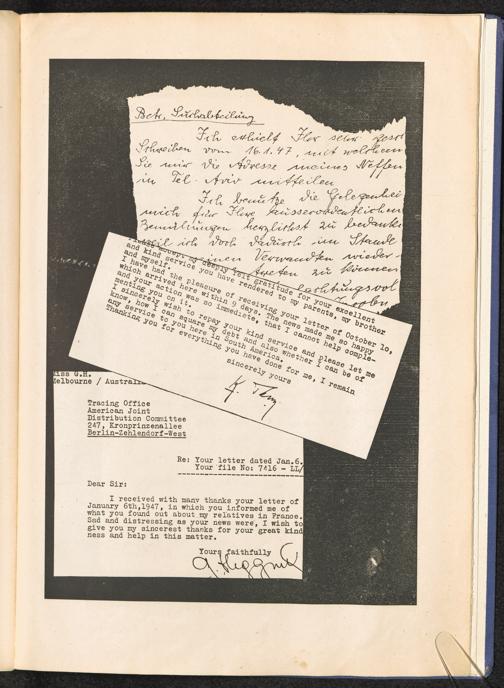 Betr. Suchabteilung
Ich erhielt Ihr sehr
Schreiben vom 16.1.47, mit welchem
Sie mir die Adresse meines Neffen
in Tel-Aviv mitteilen.
Ich benutze die Gelegenhei
mich für Ihre ausserordentlichen
Bemühungen herzlichst zu bedanke
weil ich doch dadurch im Stande
einen Verwandten wieder-
treten zu können
Please accept my deeply felt gratitude for your excellent
and kind service you have rendered to my parents, my brother
and myself.
I have had the pleasure of receiving your letter of October 10,
which arrived here within 9 days. The news made me so happy
and your action was so immediate, that I cannot help comple-
menting you on it.
I sincerely wish to repay your kind service and please let me
know, how I can square my debt and also whether I can be of
any service to you here in South America.
Thanking you for everything you have done for me, I remain
sincerely yours
Miss G.H.
Melbourne / Australia
Tracing Office
American Joint
Distribution Committee
247, Kronprinzenallee
Berlin-Zehlendorf-West
Re: Your letter dated Jan.6.
Your file No: 7416 - LL/
Dear Sir:
I received with many thanks your letter of
January 6th,1947, in which you informed me of
what you found out about my relatives in France.
Sad and distressing as your news were, I wish to
give you my sincerest thanks for your great kind
ness and help in this matter.
Yours faithfully